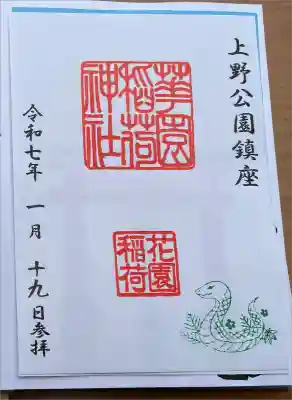 上野公園鎮座
華園
稲荷
神社
花園
稲荷
令和七年 一月 十九日参拝